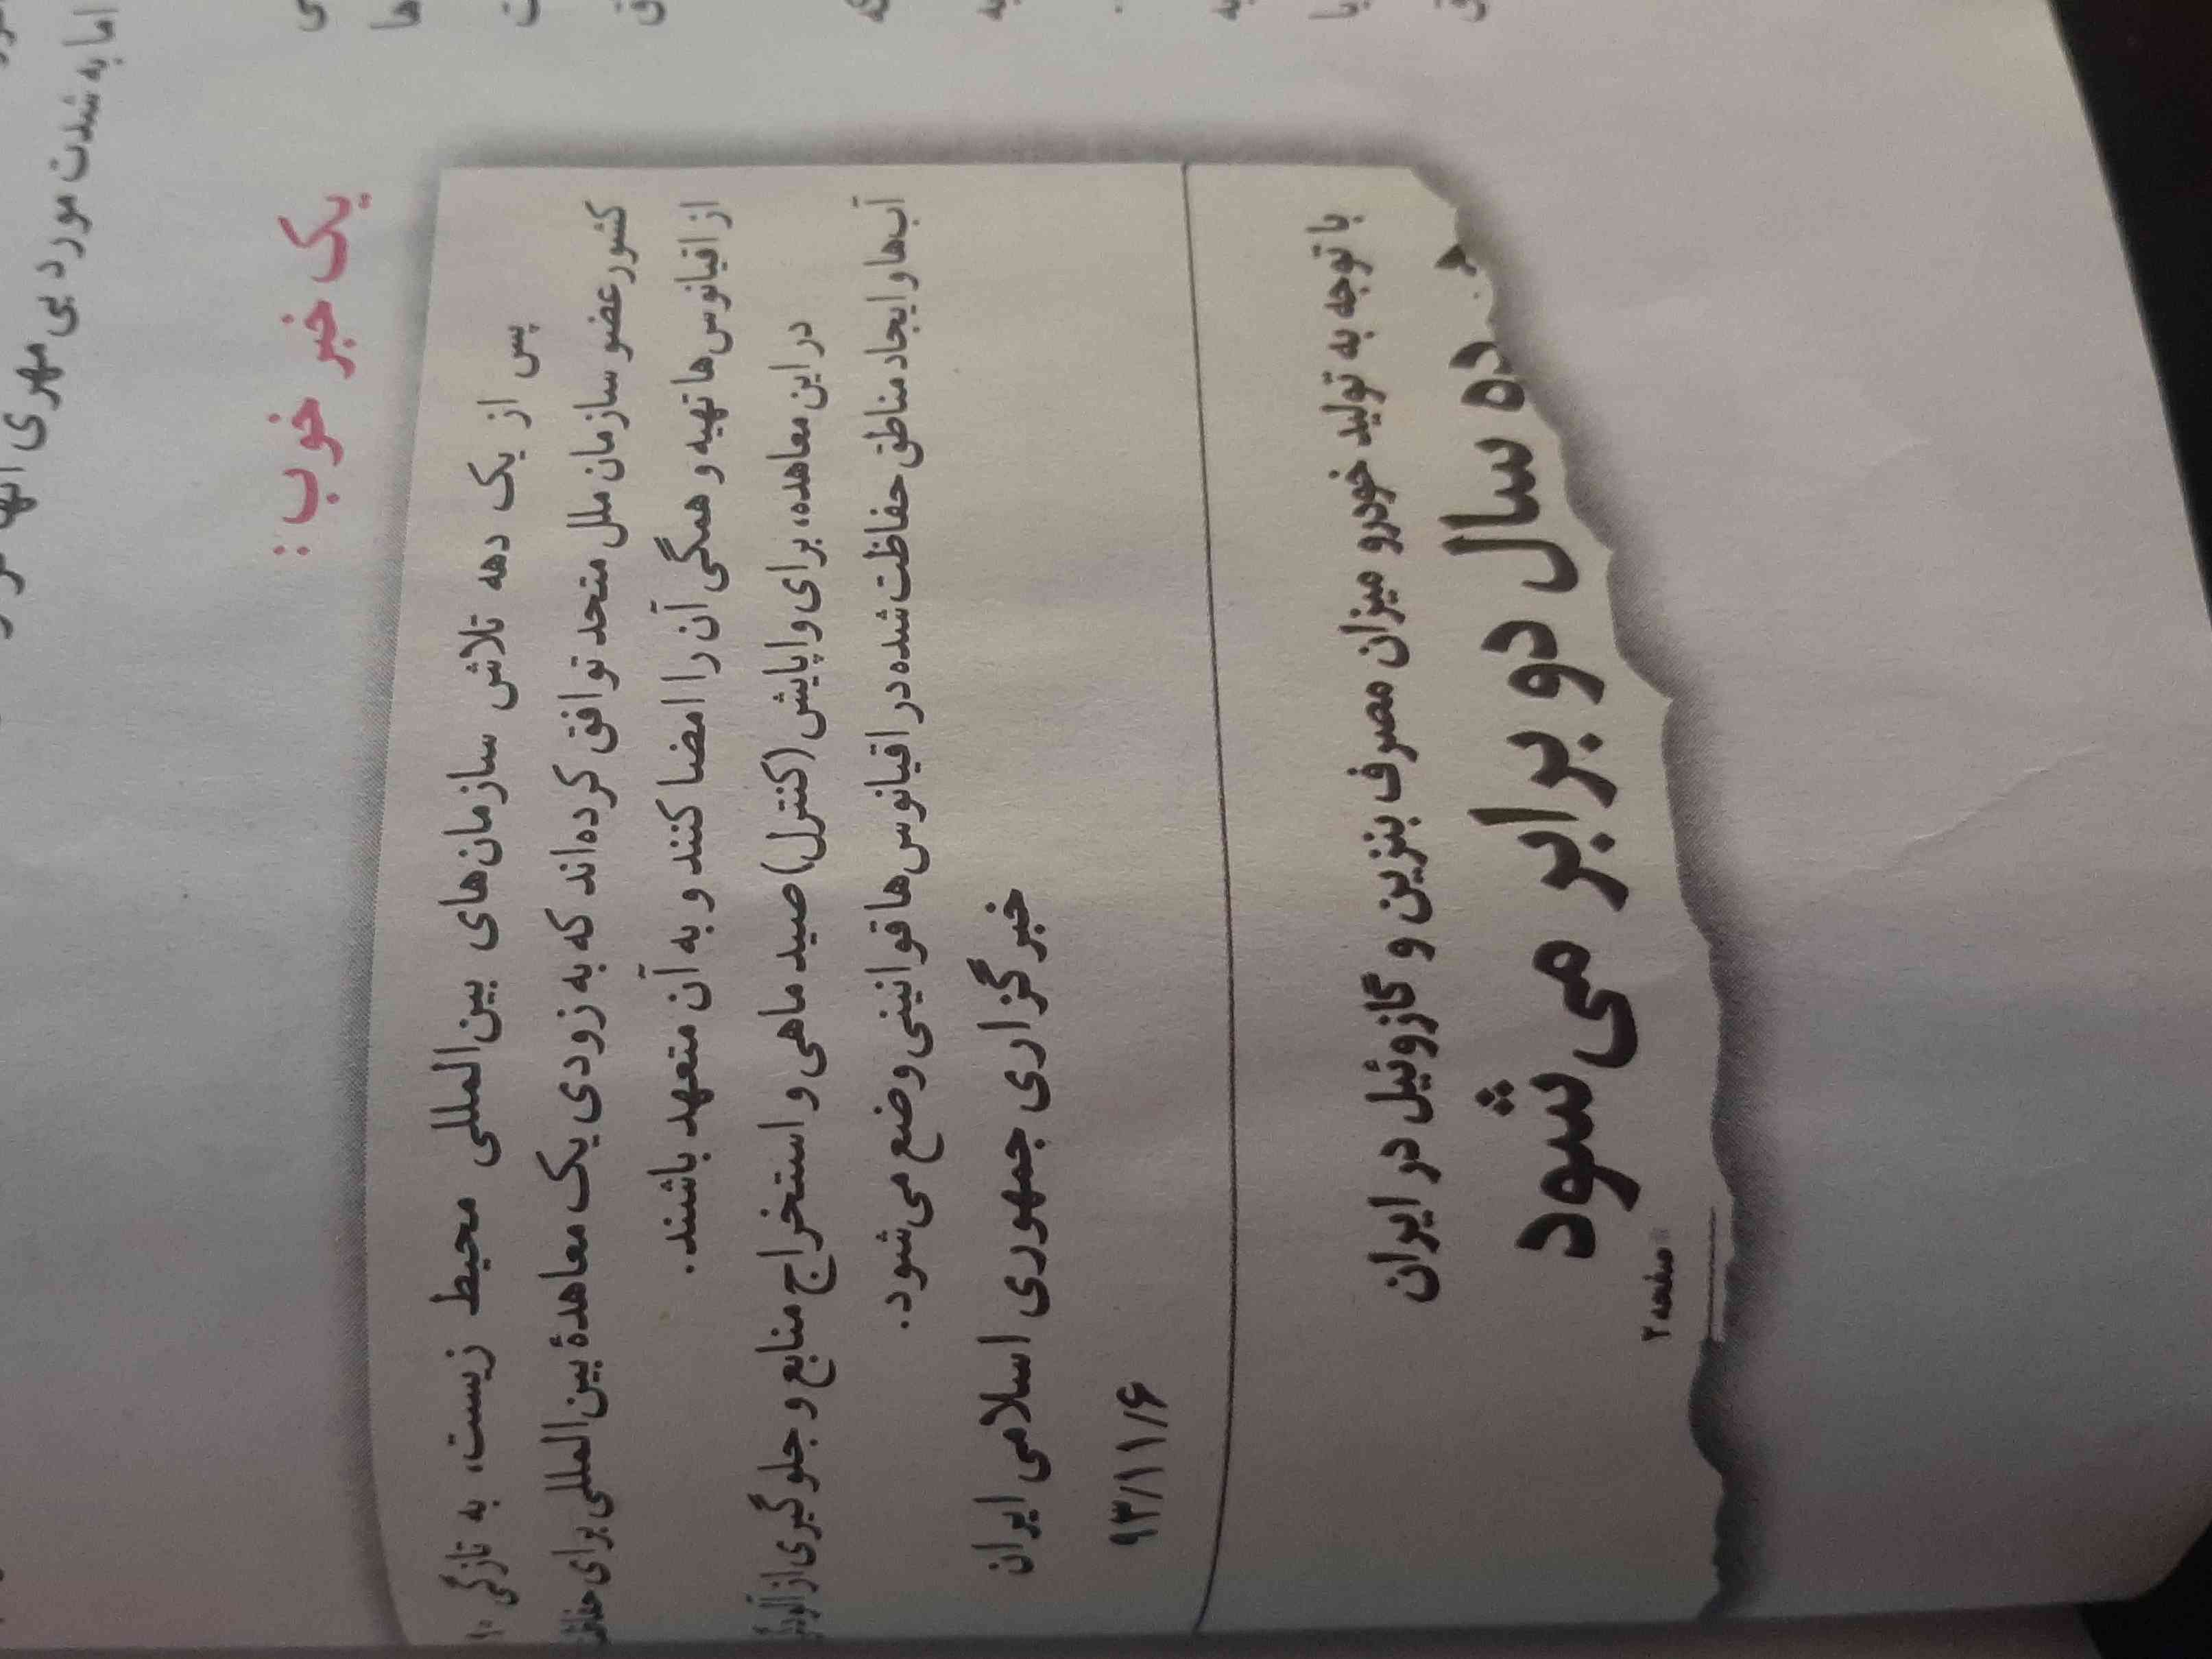 اما به شدت مورد بی مهری
یک خبر خوب:
پس از یک دهه تلاش سازمان‌های بین‌المللی محیط زیست، به تازگی
کشور عضو سازمان ملل متحد توافق کرده‌اند که به زودی یک معاهدهٔ بین‌المللی برای
از اقیانوس‌ها تهیه و همگی آن را امضا کنند و به آن متعهد باشند.
در این معاهده، برای واپایش (کنترل) صید ماهی و استخراج منابع و جلوگیری از
آب‌ها و ایجاد مناطق حفاظت شده در اقیانوس‌ها قوانینی وضع می‌شود.
خبرگزاری جمهوری اسلامی ایران
۹۳/۱۱/۶
با توجه به تولید خودرو میزان مصرف بنزین و گازوئیل در ایران
ده سال دو برابر می‌شود
صفحه ۲